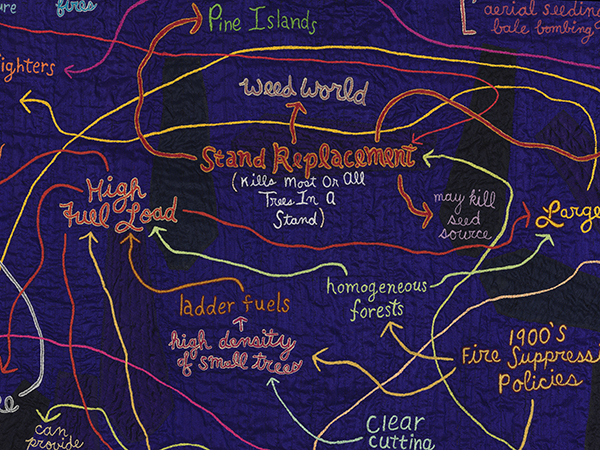 ure
fires
Pine Islands
aerial seeding
bale bombing
ighters
Weed World
Stand Replacement
(Kills Most Or All
Trees In A
Stand)
High
Fuel Load
may kill
seed
source
Large
ladder fuels
homogeneous
forests
high density
of small trees
1900's
Fire Suppressi
Policies
Clear
Cutting
can
provide